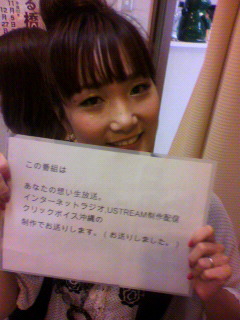 る橋
この番組は
あなたの想い生放送。
インターネットラジオ,USTREAM制作配信
クリックボイス沖縄の
制作でお送りします。(お送りしました。)